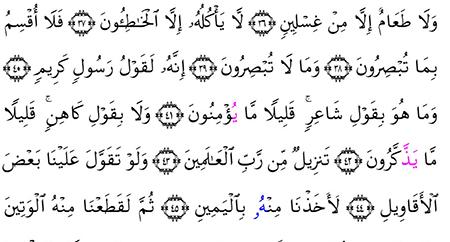 وَلَا طَعَامٌ إِلَّا مِنْ غِسْلِينٍ ﴿٣٦﴾ لَّا يَأْكُلُهُۥ إِلَّا ٱلْخَٰطِـُٔونَ ﴿٣٧﴾ فَلَا أُقْسِمُ
بِمَا تُبْصِرُونَ ﴿٣٨﴾ وَمَا لَا تُبْصِرُونَ ﴿٣٩﴾ إِنَّهُۥ لَقَوْلُ رَسُولٍ كَرِيمٍ ﴿٤٠﴾
وَمَا هُوَ بِقَوْلِ شَاعِرٍ ۚ قَلِيلًا مَّا يُؤْمِنُونَ ﴿٤١﴾ وَلَا بِقَوْلِ كَاهِنٍ ۚ قَلِيلًا
مَّا يَذَّكَّرُونَ ﴿٤٢﴾ تَنزِيلٌ مِّن رَّبِّ ٱلْعَٰلَمِينَ ﴿٤٣﴾ وَلَوْ تَقَوَّلَ عَلَيْنَا بَعْضَ
ٱلْأَقَاوِيلِ ﴿٤٤﴾ لَأَخَذْنَا مِنْهُۥ بِٱلْيَمِينِ ﴿٤٥﴾ ثُمَّ لَقَطَعْنَا مِنْهُ ٱلْوَتِينَ